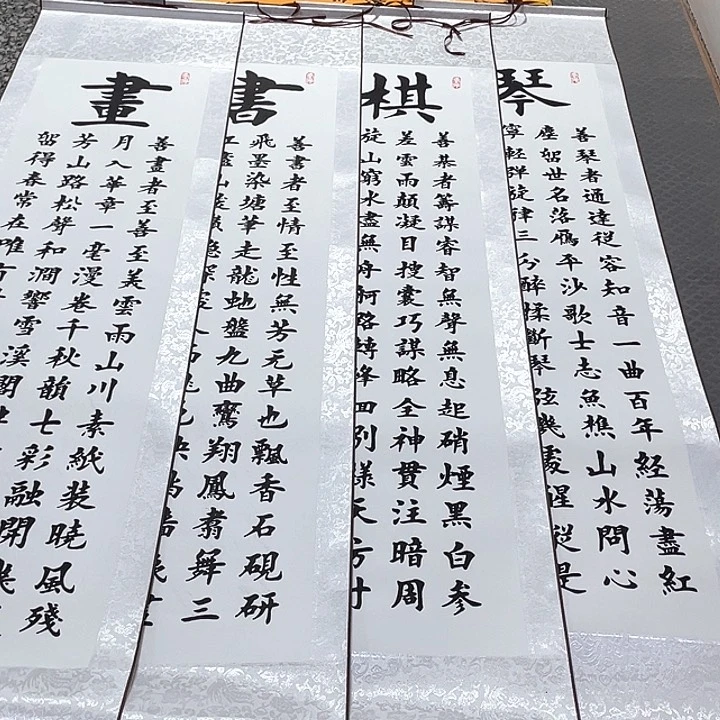 琴
善琴者通達從容知音一曲百年經蕩盡紅
塵世名落鴈平沙歌士志魚樵山水問心
寧輕弹旋律三分醉揉斷琴弦幾處醒從是
棋
善棊者籌謀睿智無聲無息起硝煙黑白参
差雲雨顛凝目搜囊巧謀略全神貫注暗周
旋山窮水盡無舟舸路轉峰回别樣天方寸
書
善書者至情至性無芳元草也飄香石硯研
飛墨染塘華走龍虵盤九曲鸞翔鳳翥舞三
畫
善畫者至善至美雲雨山川素紙装曉風殘
月入華章一毫漫卷千秋韻七彩融開幾
芳山路松聲和澗響雪溪閣
得春常在唯